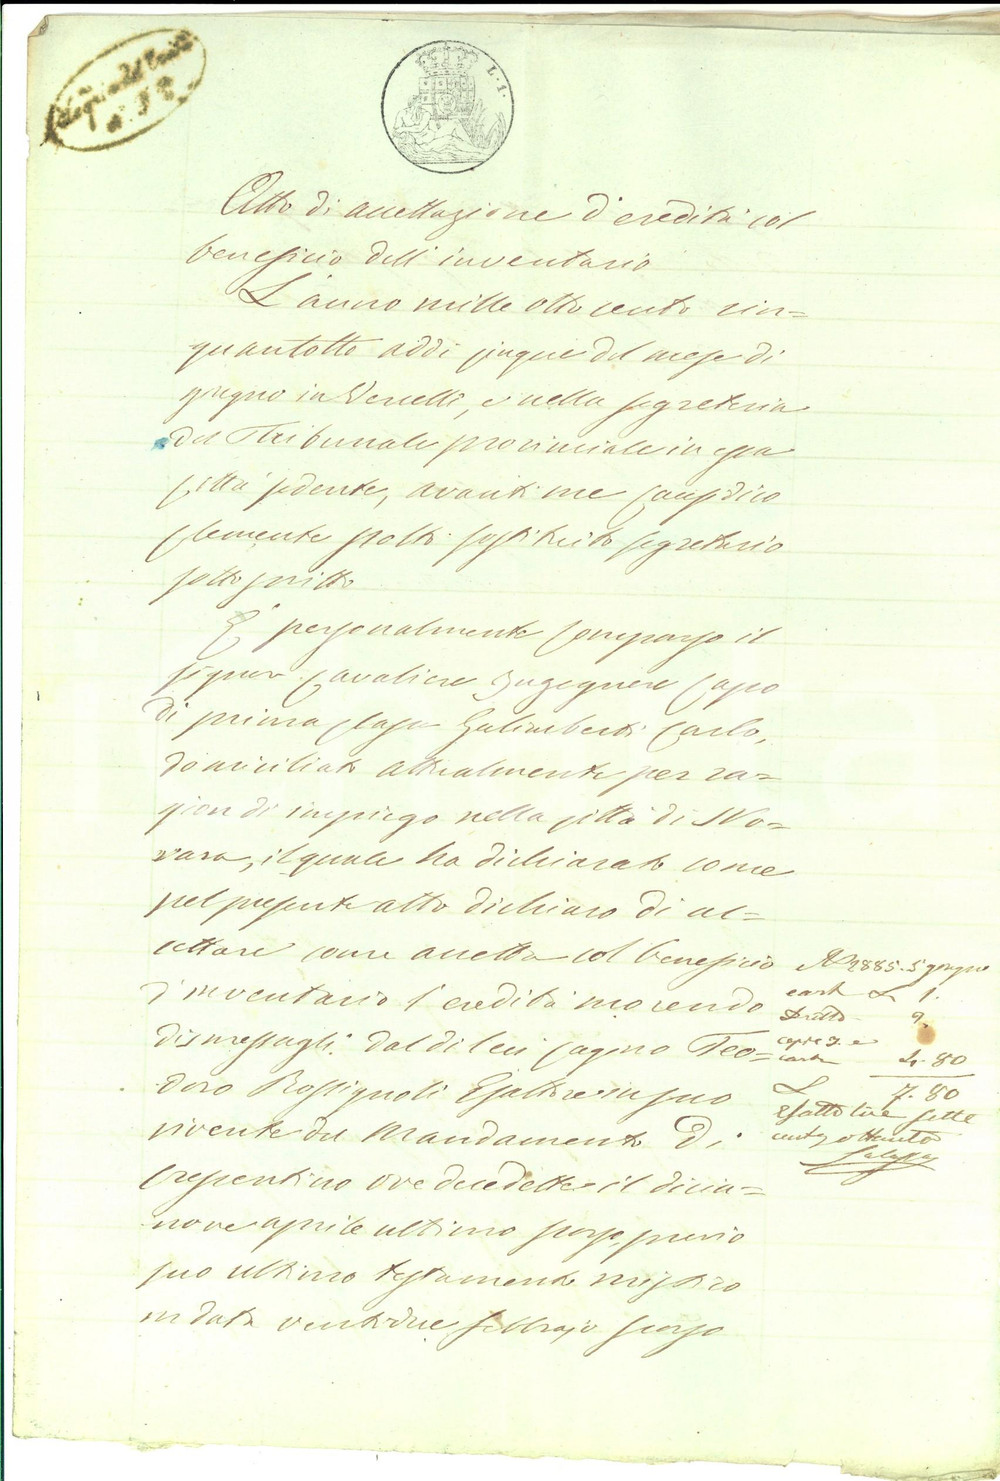 L. 1.
Atto di accettazione d'eredità col
beneficio dell'inventario
L'anno mille otto cento cin=
quantotto addi cinque del mese di
giugno in Vercelli, e nella segreteria
del Tribunale provinciale in essa
città sedente, avanti me Causidico
Clemente sostituito segretario
sottoscritto
È personalmente comparso il
signor Cavaliere Ingegnere Capo
di prima classe Galimberti Carlo,
domiciliato attualmente per ra=
gion di impiego nella città di No=
vara, il quale ha dichiarato come
pel presente atto dichiara di ac=
cettare come accetta col beneficio
d'inventario l'eredità morendo
dismessagli dal di lui cugino Teo=
doro Rossignoli Esattore in suo
vivente del Mandamento di
Crescentino ove decedette il dician=
nove aprile ultimo scorso, previo
suo ultimo testamento mistico
in data ventidue febbrajo scorso
N 2885. 5 giugno
cart L 1.
Dritto 2.
copie e
carta 4. 80
L 7. 80
Esatto lire sette
cent. ottanta